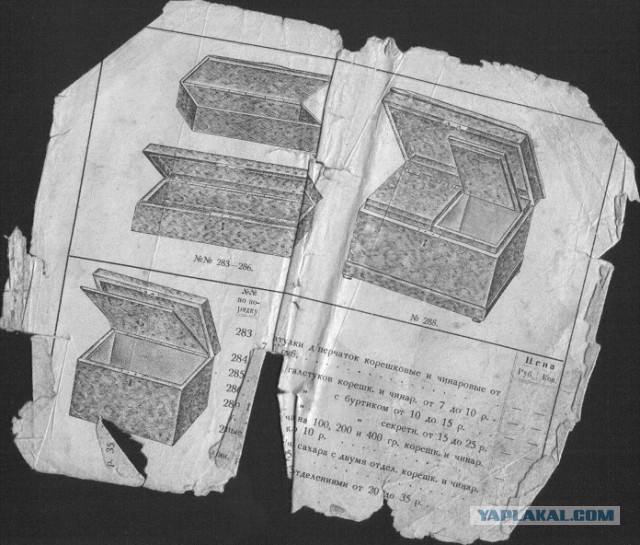 №№ 283—286.
№ 288.
№№
по по-
рядку
Цена
Руб. Коп.
283
перчаток корешковые и чинаровые от
284
285
галстуков корешк. и чинар. от 7 до 10 р.
с буртиком от 10 до 15 р.
" секретн. от 15 до 25 р.
на 100, 200 и 400 гр. корешк. и чинар.
10 р.
сахара с двумя отдел. корешк. и чинар.
отделениями от 20 до 35 р.
р. 35
YAPLAKAL.COM